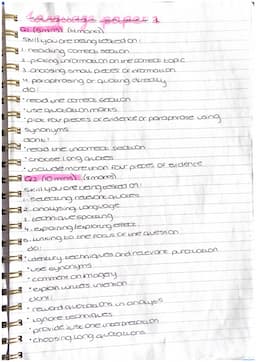 Language paper 1
Q1 (5mins) (4 marks)
skill you are being tested on:
1. reading correct section
2. picking information on the correct topic
3. choosing small pieces of information
4. paraphrasing or quoting directly
do:
* read the correct section
* use quotation marks
* pick four pieces of evidence or paraphrase using
synonyms
dont:
* read the incorrect section
* choose long quotes
* include more than four pieces of evidence
Q2 (10 mins) (8 marks)
skill you are being tested on:
1. selecting relevant quotes
2. analysing language
3. technique spotting
4. explaining/exploring effect
5. linking to the focus of the question
do:
* identify techniques and relevant punctuation
* use synonyms
* comment on imagery
* explain writers intention
dont:
* reword quotations in analysis
* ignore techniques
* provide just one interpretation
* choosing long quotations